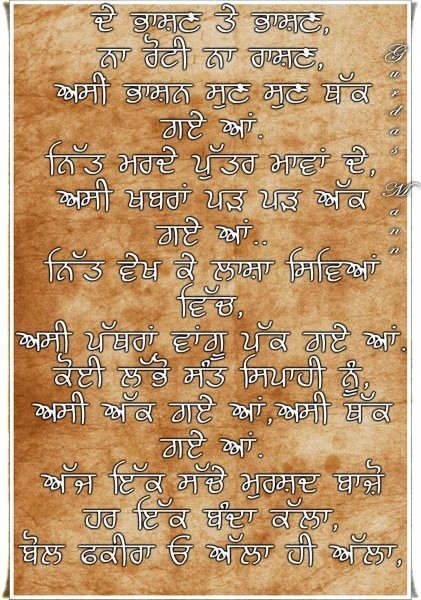 ਦੇ ਭਾਸ਼ਣ ਤੇ ਭਾਸ਼ਣ,
ਨਾ ਰੋਟੀ ਨਾ ਰਾਸ਼ਣ,
ਅਸੀਂ ਭਾਸ਼ਨ ਸੁਣ ਸੁਣ ਥੱਕ
ਗਏ ਆਂ.
ਨਿੱਤ ਮਰਦੇ ਪੁੱਤਰ ਮਾਵਾਂ ਦੇ,
ਅਸੀਂ ਖਬਰਾਂ ਪੜ ਪੜ ਅੱਕ
ਗਏ ਆਂ..
ਨਿੱਤ ਵੇਖ ਕੇ ਲਾਸ਼ਾ ਸਿਵਿਆਂ
ਵਿੱਚ,
ਅਸੀਂ ਪੱਥਰਾਂ ਵਾਂਗੂ ਪੱਕ ਗਏ ਆਂ.
ਕੋਈ ਲੱਭੋ ਸੰਤ ਸਿਪਾਹੀ ਨੂੰ,
ਅਸੀਂ ਅੱਕ ਗਏ ਆਂ,ਅਸੀਂ ਥੱਕ
ਗਏ ਆਂ.
ਅੱਜ ਇੱਕ ਸੱਚੇ ਮੁਰਸ਼ਦ ਬਾਜ਼ੋ
ਹਰ ਇੱਕ ਬੰਦਾ ਕੱਲਾ,
ਬੋਲ ਫਕੀਰਾ ਓ ਅੱਲਾ ਹੀ ਅੱਲਾ,
Gurdas Mann